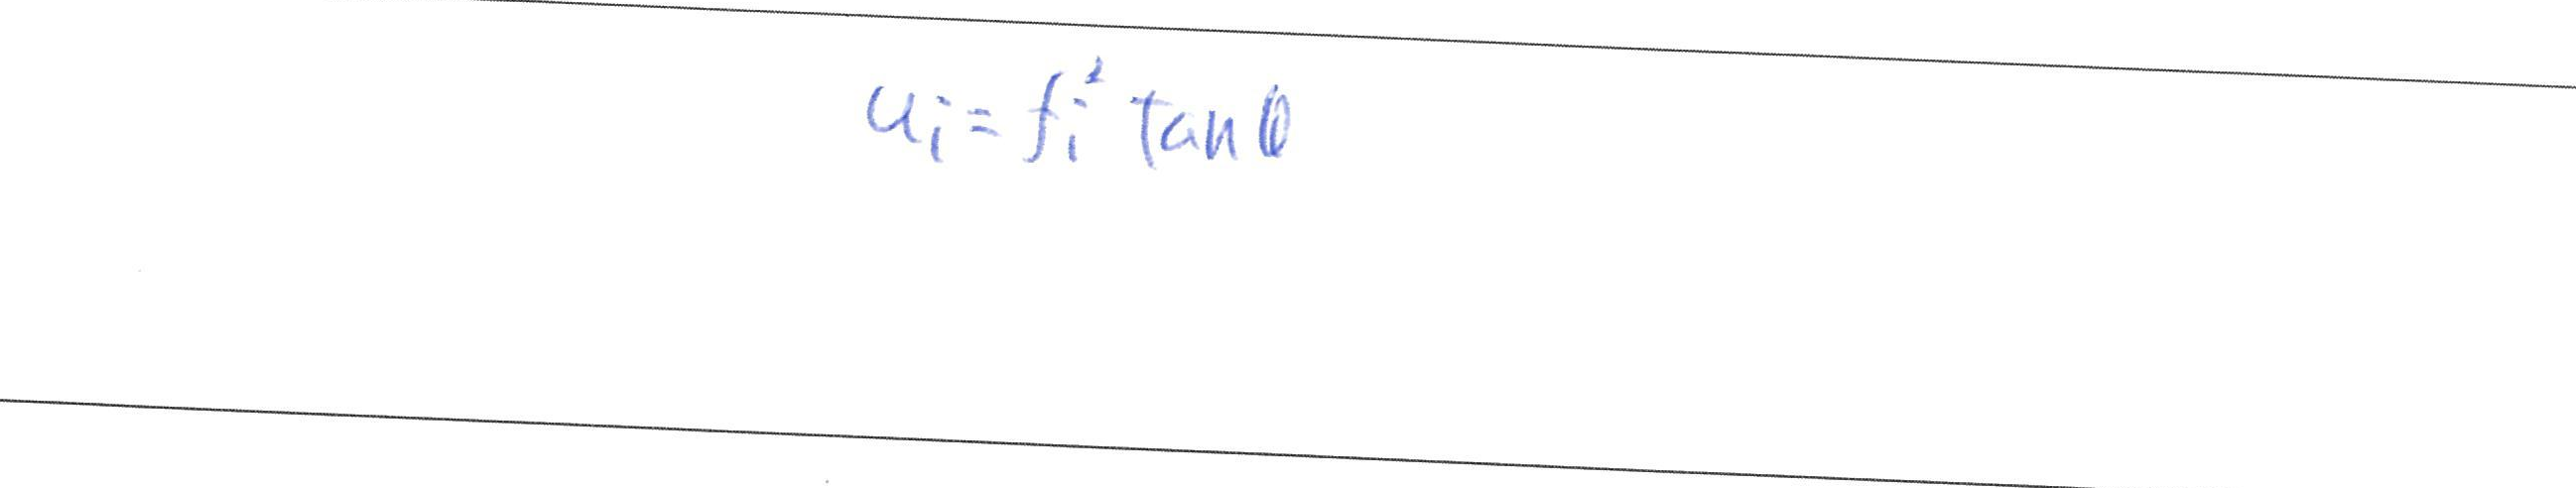 u_i = f_i^2 tan θ